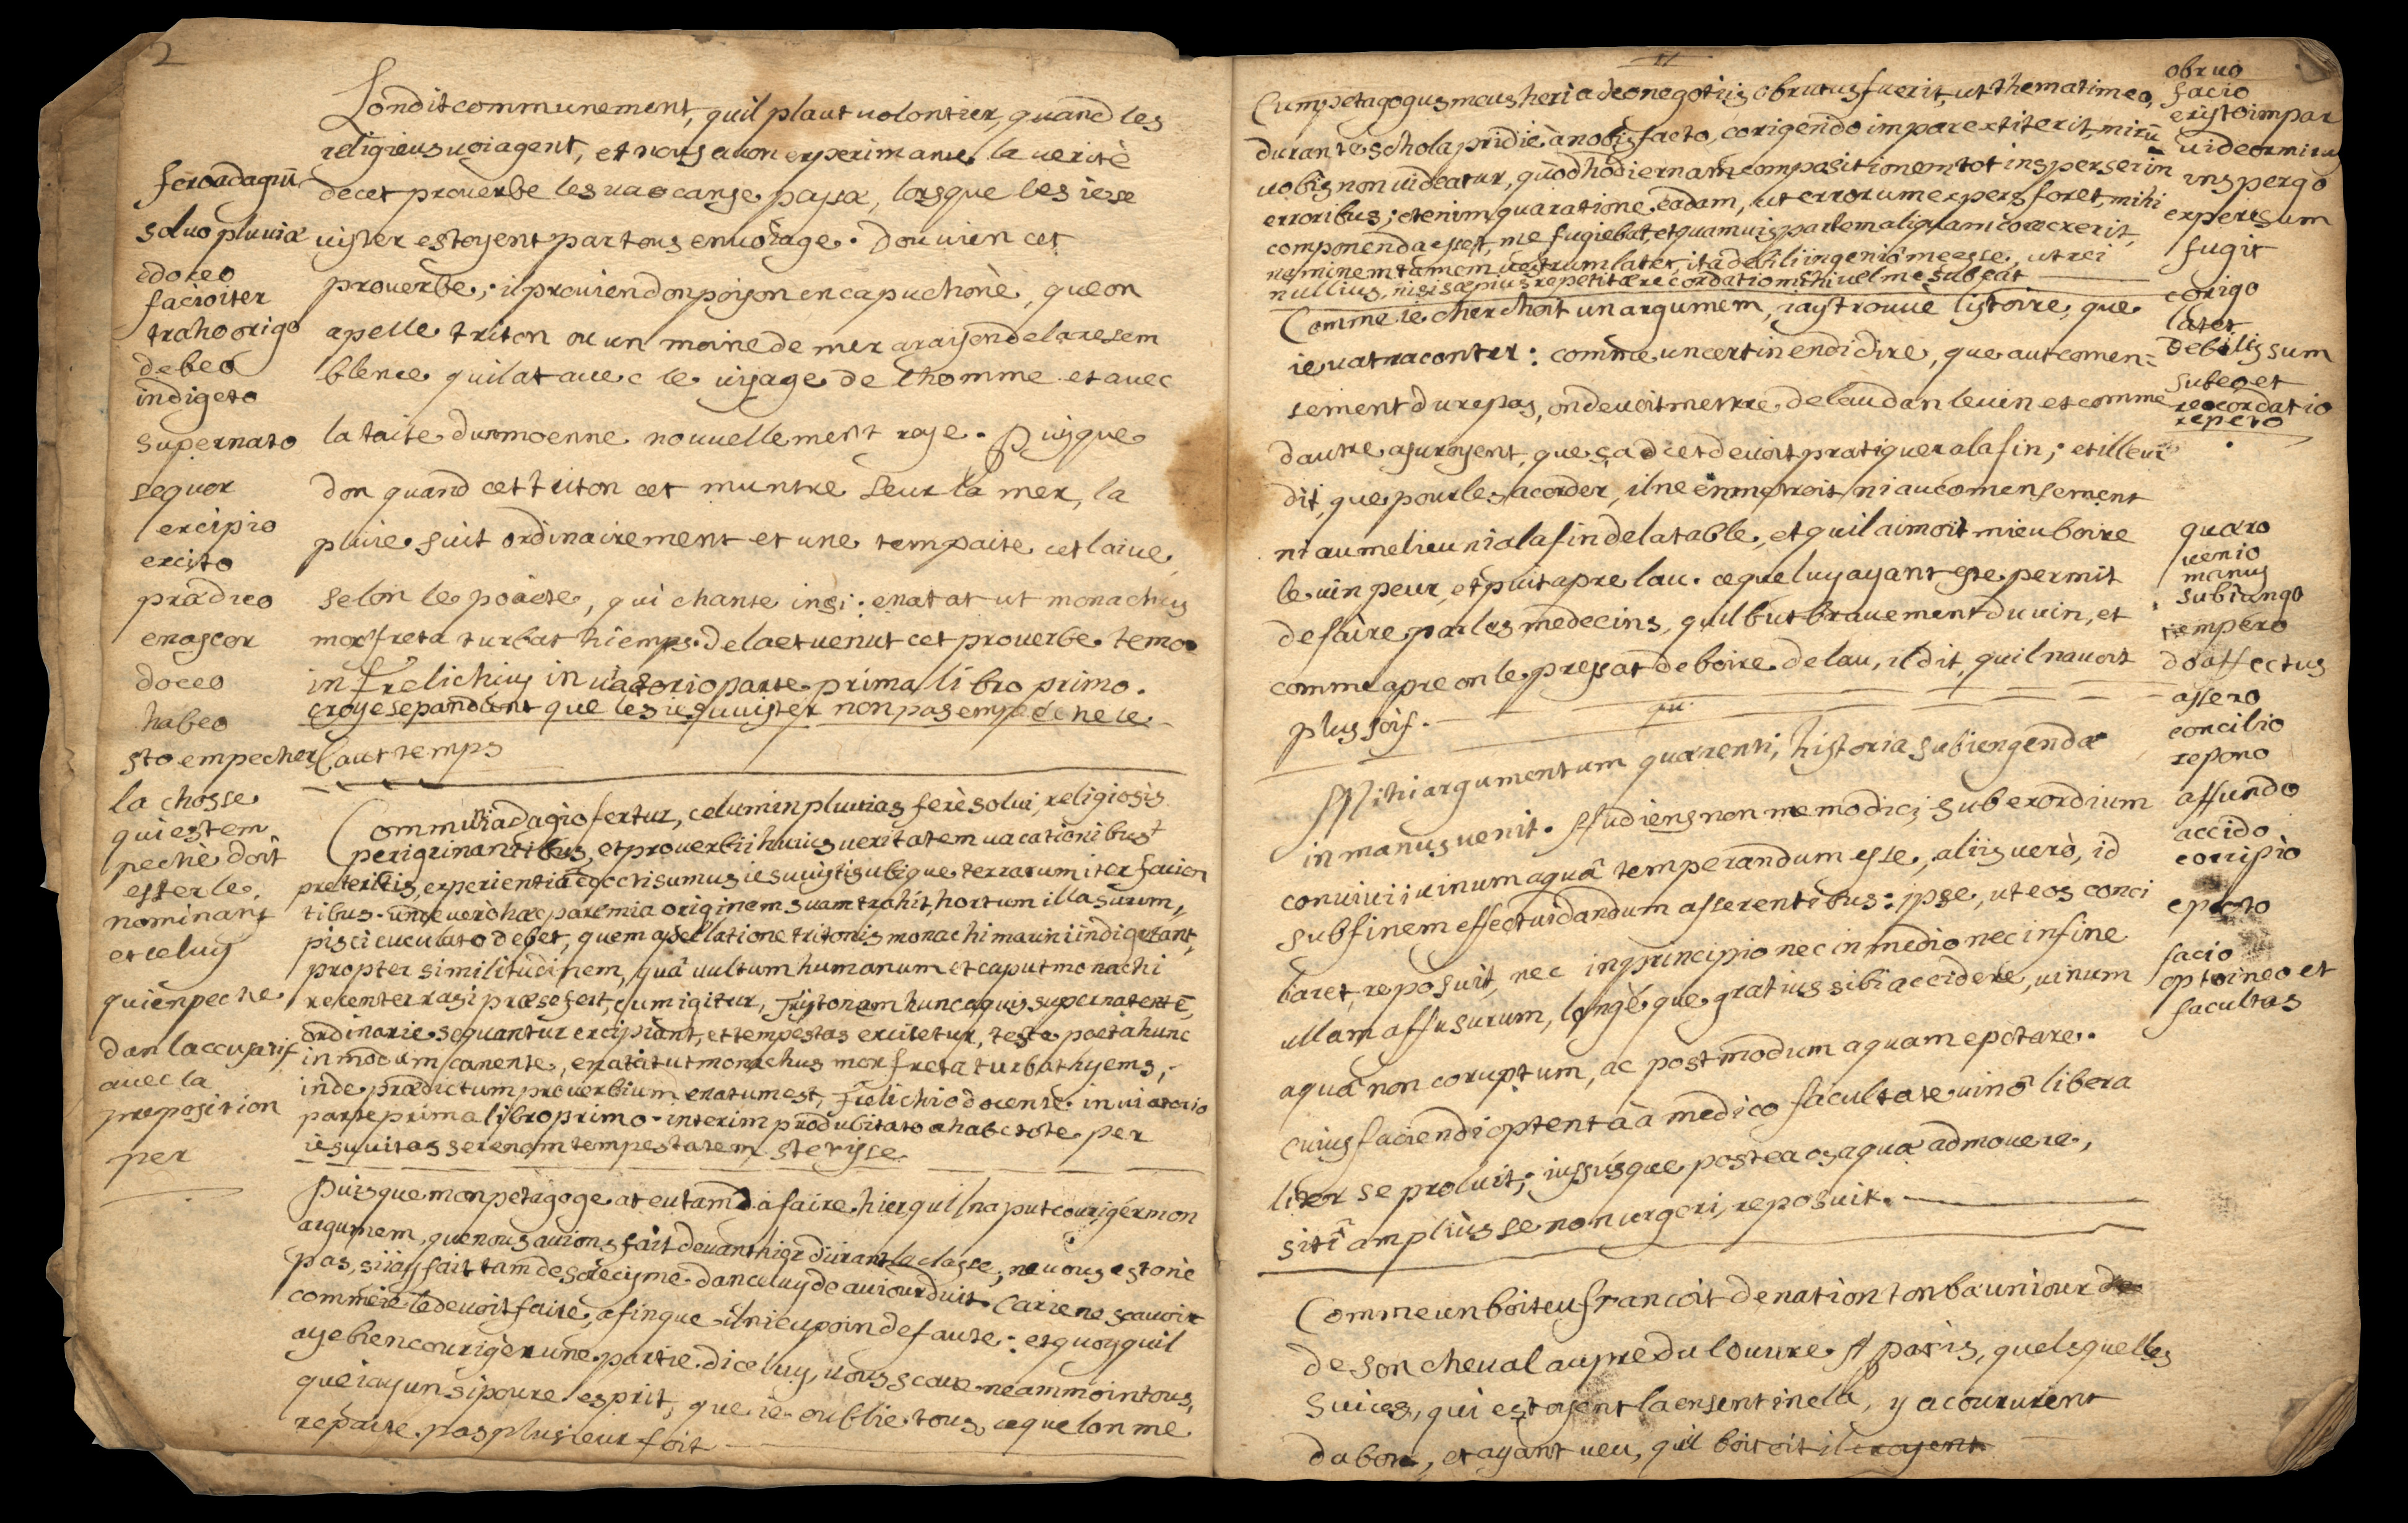 2
Londit communement, quil plaut uolontier, quand les
religieus uoiagent, et nous auon experimante la ueritè
de cet prouerbe les uaocanse passa, lorsque les iesu
uister estoyent par tous en uoiage. Dou uien cet
prouerbe, il prouiendon poison encapuchonè, que on
apelle triton ou un moine de mer a raison de la resem
blence quil at auec le uisage de lhomme et auec
la taite dunmoenne nouuellement rase. Puisque
don quand cet triton cet muntre seur la mer, la
pluie suit ordinairement et une tempaite cet laiue,
selon le poaete, qui chante insi: enatat ut monachus
mox freta turbat hiemps. dela et uenut cet prouerbe temo
in Frelichius in uiatorio parte prima libro primo.
croye sepandant que les iesuuister non pas empechè le
baut temps
fero adagiū
soluo pluuia
edoceo
facio iter
traho origo
debeo
indigeto
supernato
sequor
excipio
excito
prædico
enascor
doceo
habeo
sto empecher
la chosse
qui est em
pechè doit
esster le
nominatif
et celuy
qui enpeche
dan laccusatif
auec la
preposition
per
Communi adagio fertur, celum in pluuias ferè solui, religiosis
perigrinantibus, et prouerbii huius ueritatem uacationibus
preteritis, experientia edocti sumus iesuuistis ubique terrarum iter facien
tibus. unde uerò hæc paremia originem suam trahit, hortum illa suum,
pisci cuculato debet, quem apellatione tritonis monachi marini indigitant,
propter similitudinem, quâ uultum humanum et caput monachi
recenter rasi præ se fert, cum igitur, Tritonem hunc aquis supernatentē,
ordinarie sequantur excipiant, et tempestas excitetur, teste poeta hunc
in modum canente, enatat ut monachus mox freta turbat hyems,
inde prædictum prouerbium enatum est, Frelichio docente in uiatorio
parte prima libro primo. interim pro dubitato habetote per
iesuuitas serenam tempestatem stetisse
Puisque mon petagoge at eu tamd a faire hier quil na put courigér mon
argumem, que nous auions fait deuanthier durant la classe, ne uous estonè
pas, si iay fait tam de solecisme dan celuy de auiourduit. Car ie ne scauoit
comme ie le deuoit faire, afin que il ni eu poin de faute: et quoy quil
aye bien courigèr une partie dicelluy, uous scaue neammoin tous,
que iay un si poure esprit, que ie oublie tous, ce que lon me
repaite pas plusieur foit
11
Cum petagogus meus heri adeo negotiis obrutus fuerit, ut themati meo,
durante schola pridie à nobis facto, corigendo impar extiterit, mirū
uobis non uideatur, quòd hodiernam compositionem tot insperserim
erroribus; etenim qua ratione eadam, ut errorum expers foret, mihi
componenda esset, me fugiebat, et quamuis partem aliquam corexerit,
neminem tamem uestrum latet, ita debili ingenio me esse, ut rei
nullius, nisi sæpius repetitæ recordatio mihi uel me subeat
obruo
facio
existo impar
uideor mirus
inspergo
expers sum
fugit
corigo
latet
debilis sum
subeo et
recordatio
repeto
Comme ie cherchoit un argumem, iay trouuè listoire, que
ie uat raconter: comme un certin endidire, que aut comen=
sement du repas, on deuoit mettre de lau dan le uin et comme
dautre asuroyent, que ça cet deuoit pratiquer a la fin; et il leur
dit, que pour les acorder, il ne en metroit ni au comensement
ni au melieu ni a la fin de la table, et quil aimoit mieu boire
le uin peur, et puit apre lau. ce que luy ayant este permit
de faire par les medecins, quil but brauement du uin, et
comme apre on le pressat de boire de lau, il dit, quil nauoit
plus soif.
quæro
uenio
manus
subiungo
tempero
do affectus
assero
concilio
repono
affundo
accido
corripio
epoto
facio
optineo et
facultas
Mihi argumentum quærenti, historia subiungenda
in manus uenit. Audiens non nemo dici, sub exordium
conuiuii uinum aquâ temperandum esse, aliis uerò, id
sub finem effectui dandum asserentibus: ipse, ut eos conci
liaret, reposuit, nec in principio nec in medio nec in fine
ullam affusurum, longè que gratius sibi accidere, uinum
aquâ non coruptum, ac post modum aquam epotare.
cuius faciendi optenta à medico facultate uino libera
liter se proluit; iussusque postea os aquæ admouere,
siti amplius se non urgeri, reposuit.
Comme un boiteu francoit de nation tonba un iour de
de son cheual aupre du louure A paris, quelsquelles
suices, qui estoyent la en sentinela, y acoururent
dabor, et ayant ueu, quil boitoit il croyent